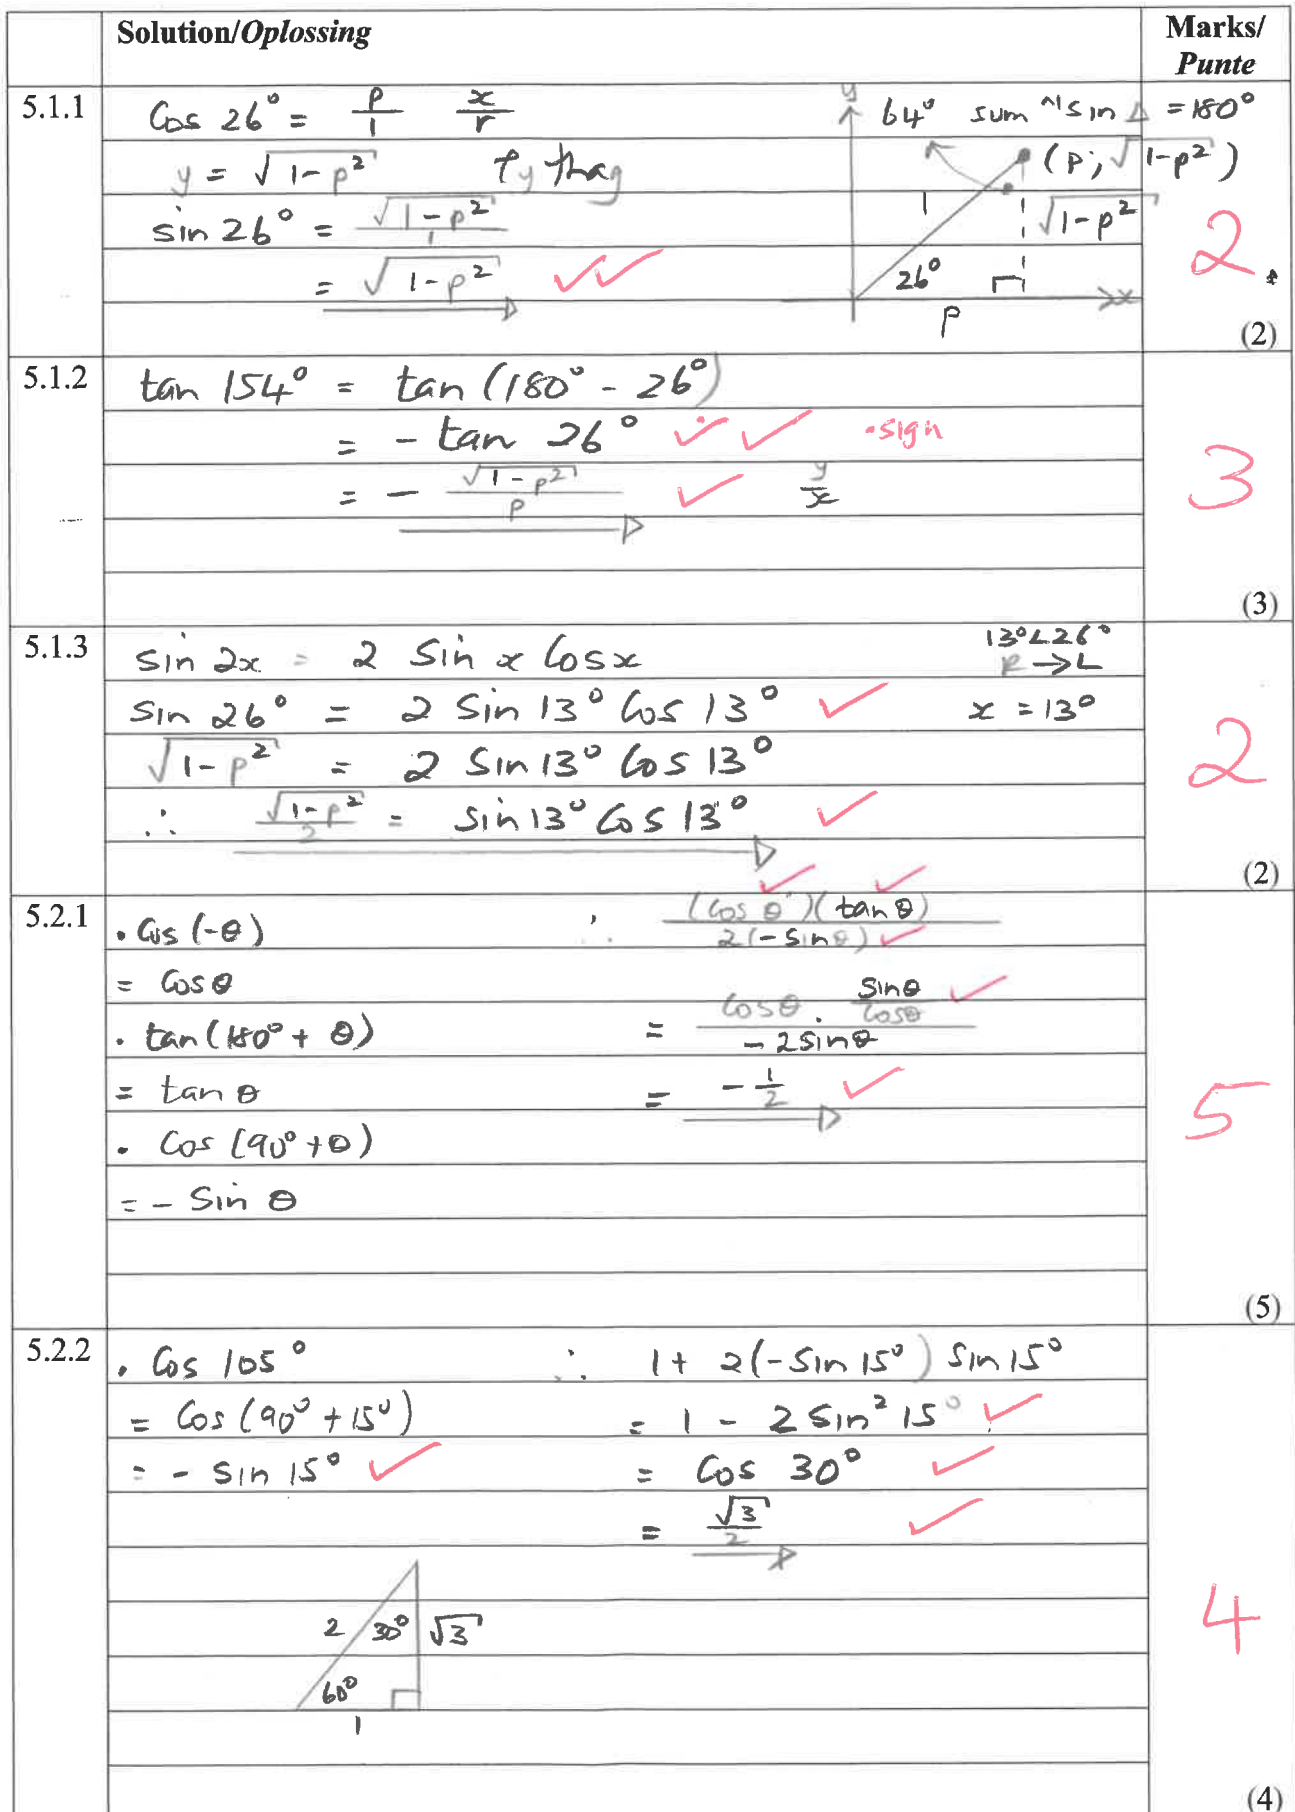 Solution/Oplossing
Marks/
Punte
5.1.1
Cos 26° = p/1 x/r
y = √(1-p²) Pythag
sin 26° = √(1-p²)/1
= √(1-p²)
y
64° sum ^'s in Δ = 180°
(p; √(1-p²))
1
√(1-p²)
26°
x
p
2.
(2)
5.1.2
tan 154° = tan (180° - 26°)
= - tan 26° •sign
= - √(1-p²)/p y/x
3
(3)
5.1.3
sin 2x = 2 sin x Cos x
13°∠26°
R → L
sin 26° = 2 Sin 13° Cos 13° x = 13°
√(1-p²) = 2 Sin 13° Cos 13°
∴ √(1-p²)/2 = sin 13° Cos 13°
2
(2)
5.2.1
• Cos (-θ)
= Cos θ
• tan (180° + θ)
= tan θ
• Cos (90° + θ)
= - Sin θ
∴ (Cos θ)(tan θ)/2(-sin θ)
= Cos θ . Sin θ/Cos θ / -2 sin θ
= -1/2
5
(5)
5.2.2
• Cos 105°
= Cos (90° + 15°)
= - sin 15°
∴ 1 + 2(-Sin 15°) Sin 15°
= 1 - 2 Sin² 15°
= Cos 30°
= √3/2
2 30° √3
60°
1
4
(4)